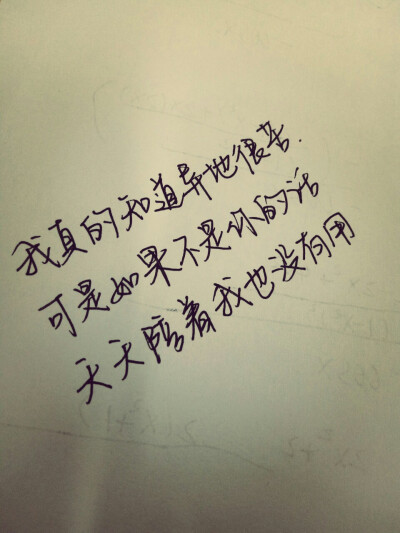 我真的知道异地很苦.
可是如果不是你的话
天天陪着我也没有用